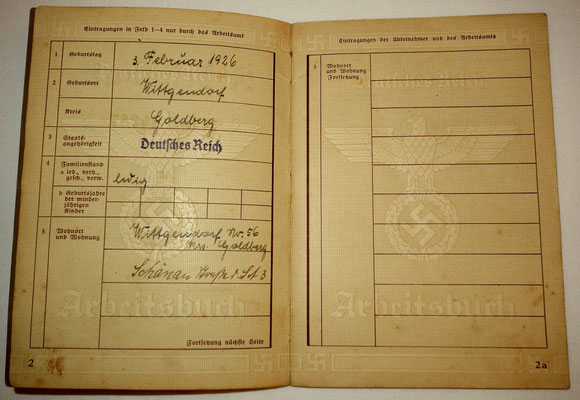 Eintragungen in Feld 1–4 nur durch das Arbeitsamt
1 Geburtstag 3. Februar 1926
2 Geburtsort Wittgendorf
Kreis Goldberg
3 Staats-
angehörigkeit Deutsches Reich
4 Familienstand
a led., verh.,
gesch., verw. ledig
b Geburtsjahre
der minder-
jährigen
Kinder
5 Wohnort
und Wohnung
Wittgendorf Nr. 56
Krs. Goldberg
Schönau
3
Arbeitsbuch
Fortsetzung nächste Seite
2
Eintragungen der Unternehmer und des Arbeitsamts
5 Wohnort
und Wohnung
Fortsetzung
Arbeitsbuch
2a